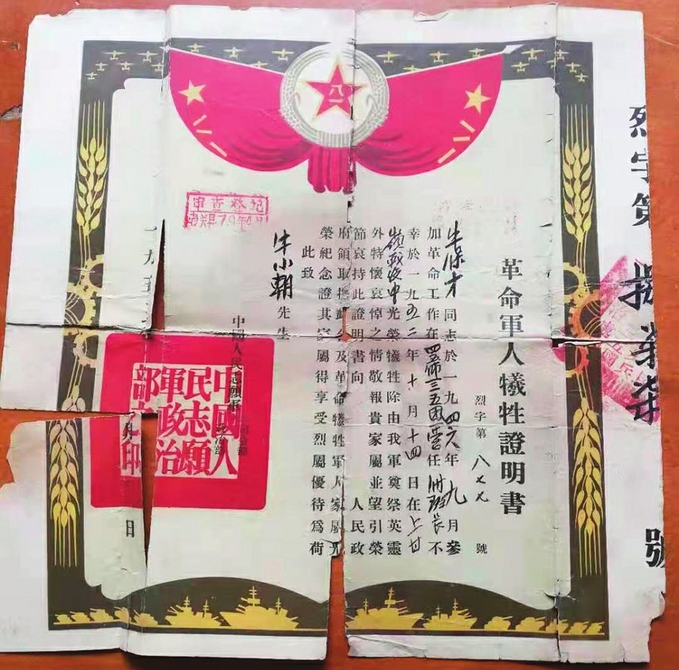 烈字第捌柒號
革命軍人犧牲證明書
烈字第八七號
牛保才同志於一九四六年九月參
加革命工作在師三五團營任副班長不
幸於一九五二年十月十四日在上甘
嶺戰役中光榮犧牲除由我軍奠祭英靈
外特懷哀悼之情敬報貴家屬並望引榮
節哀持此證明書向 人民政
府領取撫及革命犧牲軍人家屬光
榮紀念證其家屬得享受烈屬優待為荷
此致
牛小朝先生
中國人民志願軍
中國人
民志願
軍政治
部
一九五
日
八一
八一
八一